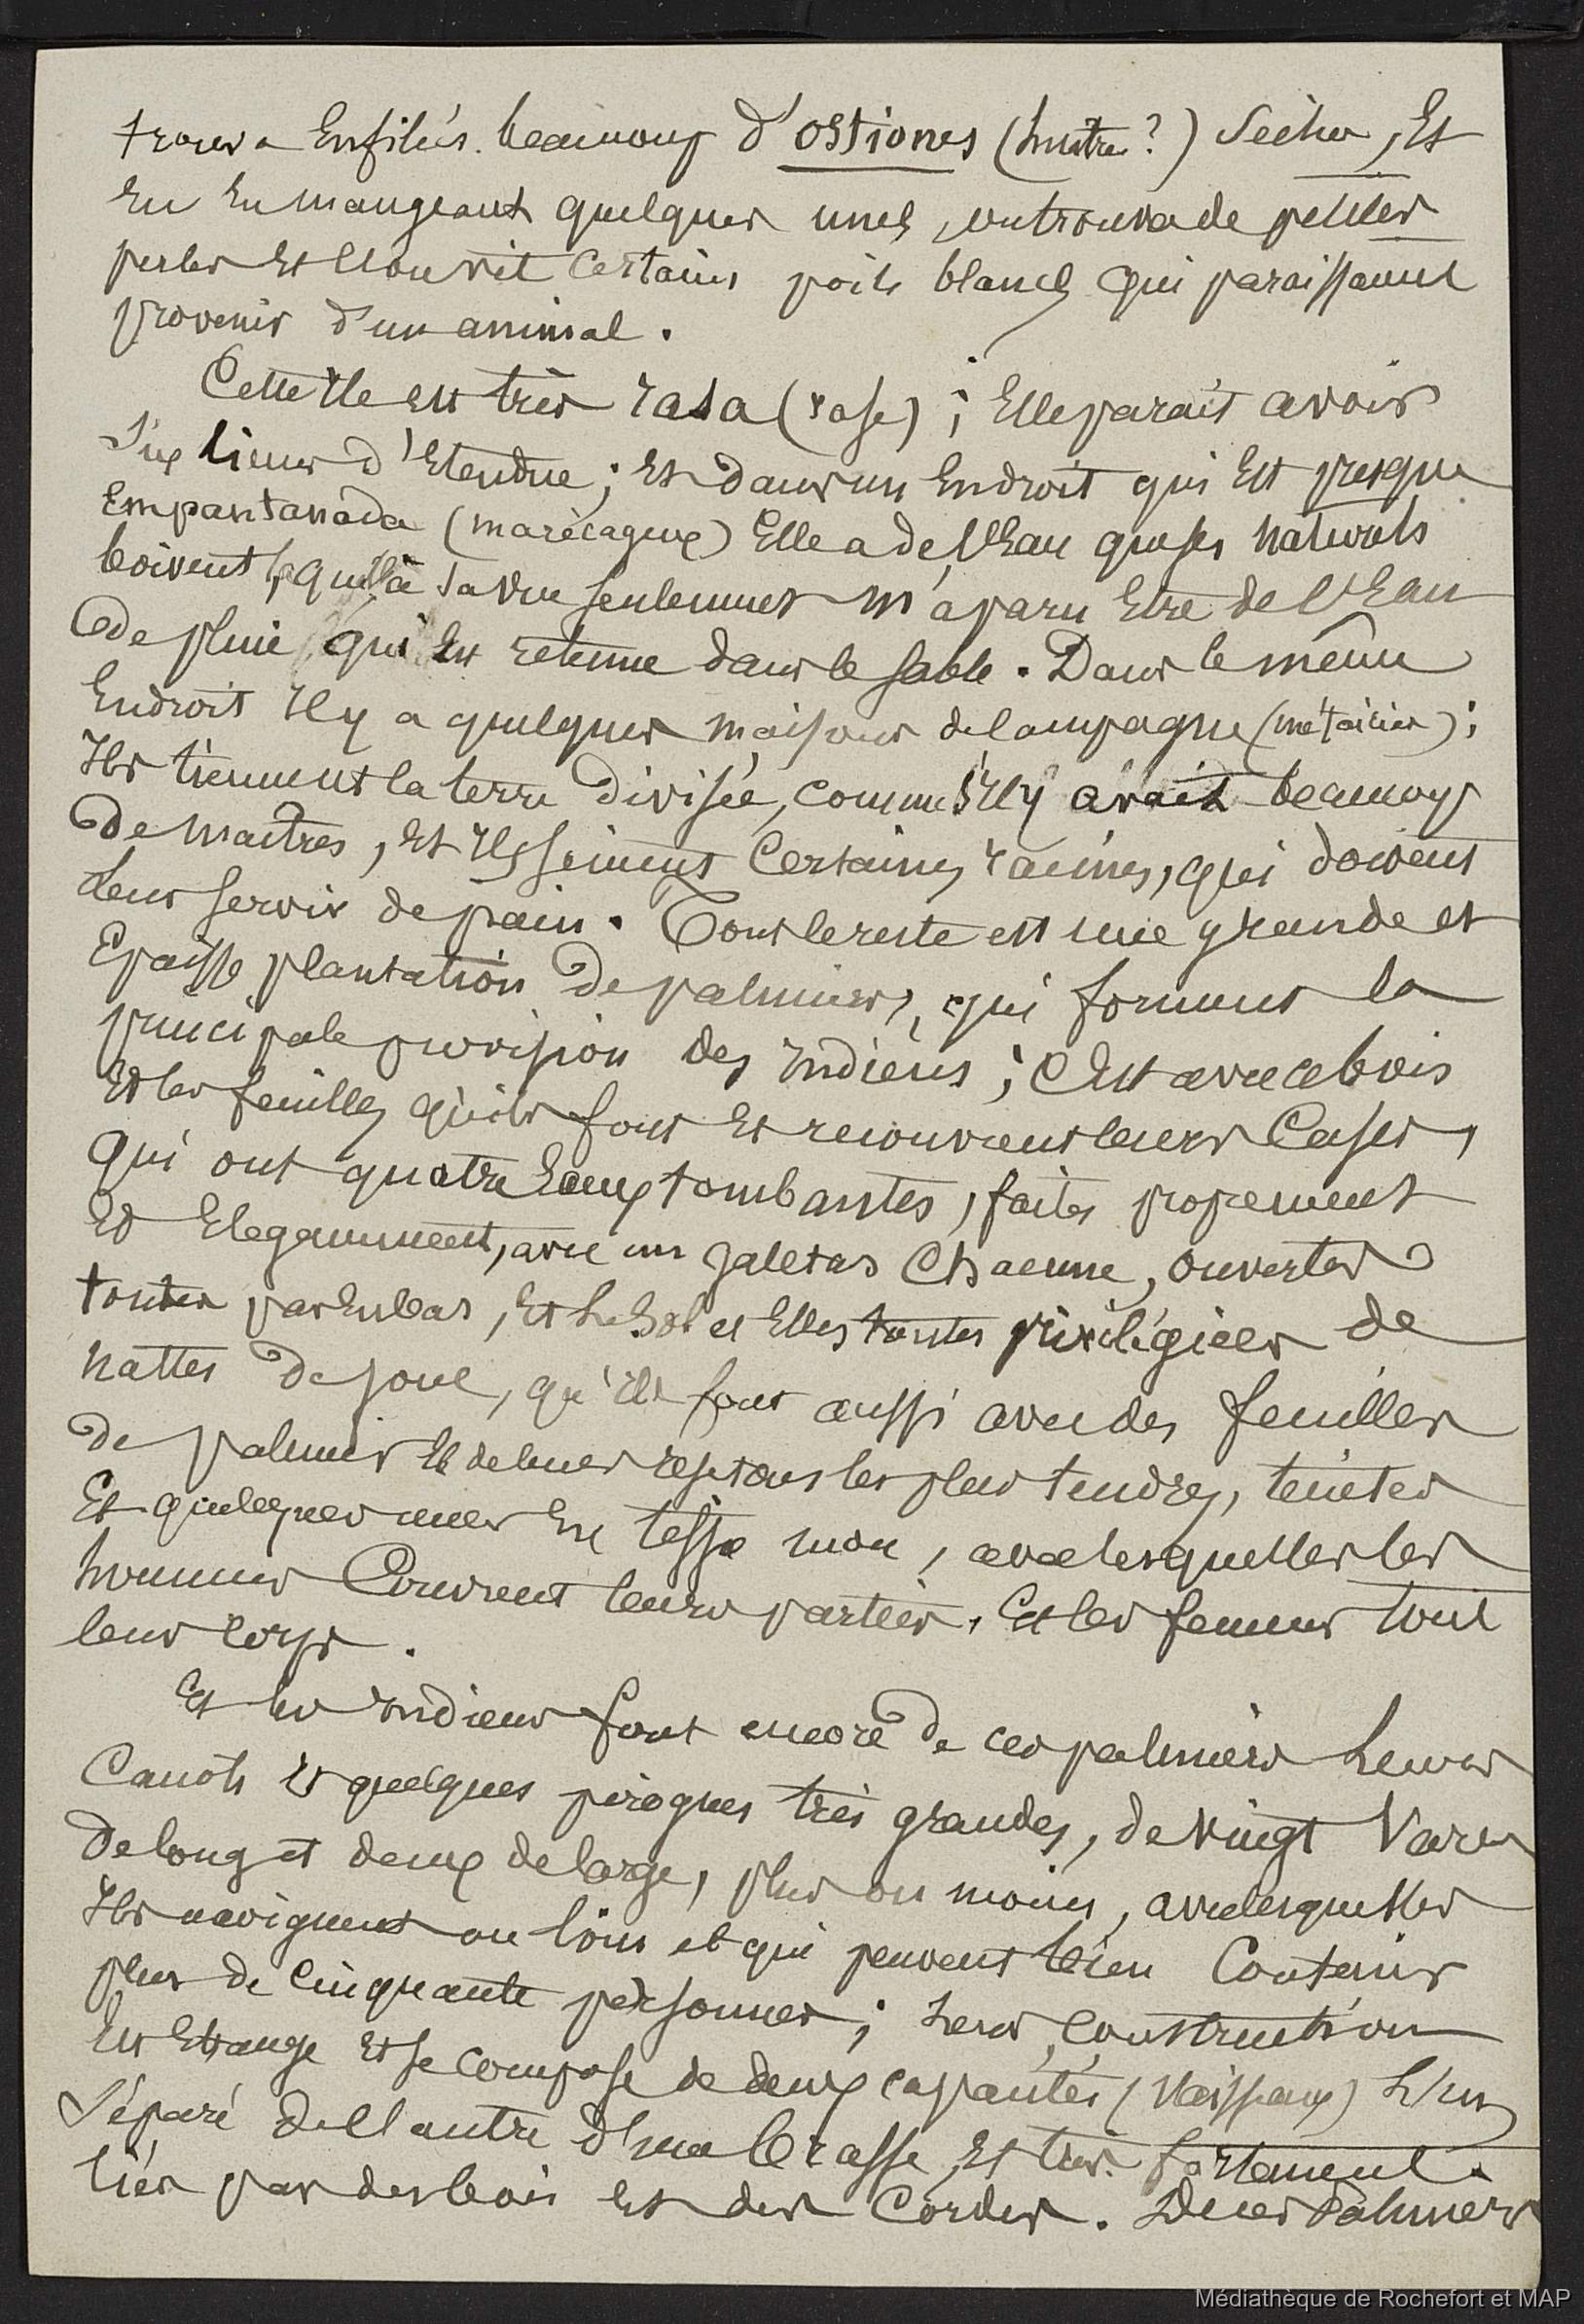 trouva Enfilés beaucoup d'ostiones (huitre?) Seches, Et
En En mangeant quelques unes, on trouva de petites
perles Et l'on vit Certains poils blancs qui paraissaient
provenir d'un animal.
Cette Ile est très rasa (rase) ; Elle parait avoir
Six lieues d'Etendue ; Et dans un Endroit qui Est presque
Empantanada (marécageux) Elle a de l'Eau que ses naturels
boivent, qui à sa vue seulement m'a paru Etre de l'Eau
De pluie qui Est retenue dans le sable. Dans le même
Endroit Il y a quelques maisons de campagne (métairies) ;
Ils tiennent la terre Divisée, comme s'Il y avait beaucoup
De maitres, Et Ils sement Certaines racines, qui doivent
Leur servir de pain. Tout le reste est une grande et
Epaisse plantation De palmiers, qui forment la
principale provision des Indiens ; C'Est avec ce bois
Et les feuilles qu'ils font Et recouvrent leurs Cases,
Qui ont quatre Eaux tombantes, faites proprement
Et Elegamment, avec un galetas Chacune, ouvertes
toutes par En bas, Et Le Sol et Elles toutes privilégiées de
nattes De jonc, qu'ils font aussi avec des feuilles
De palmier Et de leurs rejetons les plus tendres, teintes
Et quelques unes En, avec lesquelles les
hommes Couvrent leurs parties, Et les femmes tout
leur corps.
Et les Indiens font encore De ces palmiers Leurs
Canots Et quelques pirogues très grandes, de vingt Vares
De long et deux de large, plus ou moins, avec lesquelles
Ils naviguent au loin et qui peuvent bien Contenir
plus de Cinquante personnes ; Leur Construction
Est Etrange Et se compose de deux (Vaisseaux) L'un
Séparé de l'autre D'une brasse, Et très fortement
liés par des bois Et des Cordes. De ces Palmiers
Médiathèque de Rochefort et MAP